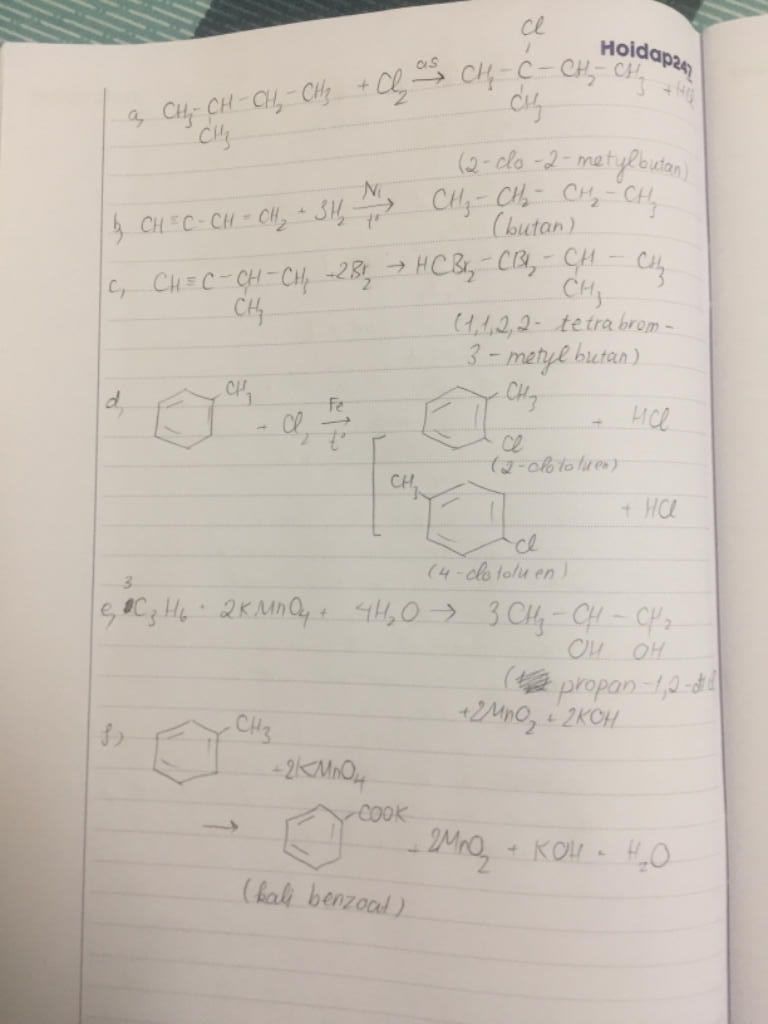 Hoidap247
Cl
a, CH3-CH-CH2-CH3 + Cl2 as→ CH3-C-CH2-CH3 + HCl
CH3 CH3
(2-clo-2-metylbutan)
b, CH≡C-CH=CH2 + 3H2 Ni t°→ CH3-CH2-CH2-CH3
(butan)
c, CH≡C-CH-CH3 +2Br2 → HCBr2-CBr2-CH-CH3
CH3 CH3
(1,1,2,2-tetrabrom-
3-metylbutan)
d, CH3 + Cl2 Fe t°→ CH3 Cl + HCl
(2-clotoluen)
CH3 Cl + HCl
(4-clotoluen)
e, 3C3H6 + 2KMnO4 + 4H2O → 3CH3-CH-CH2
OH OH
(propan-1,2-diol
+2MnO2 + 2KOH
f,) CH3
+2KMnO4
→ COOK + 2MnO2 + KOH + H2O
(kali benzoat)